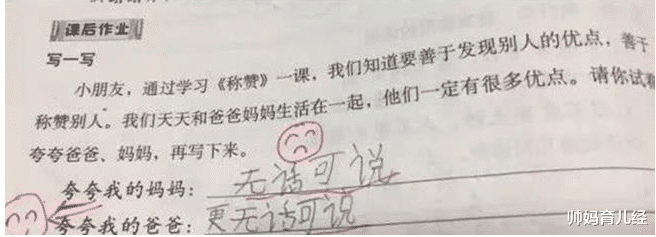 课后作业
写一写
小朋友，通过学习《称赞》一课，我们知道要善于发现别人的优点，善于
称赞别人。我们天天和爸爸妈妈生活在一起，他们一定有很多优点。请你试着
夸夸爸爸、妈妈，再写下来。
夸夸我的妈妈：无话可说
夸夸我的爸爸：更无话可说
帅妈育儿经